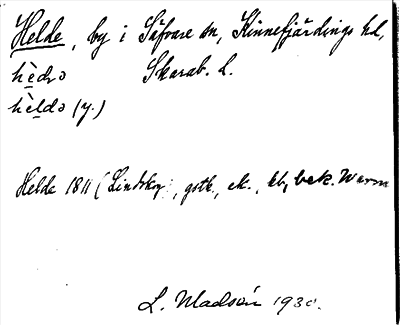 Helde, by i Säfvare sn, Kinnefjärdings hd,
hèdɔ Skarab. L.
hèldɔ (y.)
Helde 1811 (Lindskog), gstb., ek., kb, bek. Warm
L. Madsén 1930.